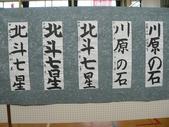 川原の石
川原の石
北斗七星
北斗七星
北斗七星